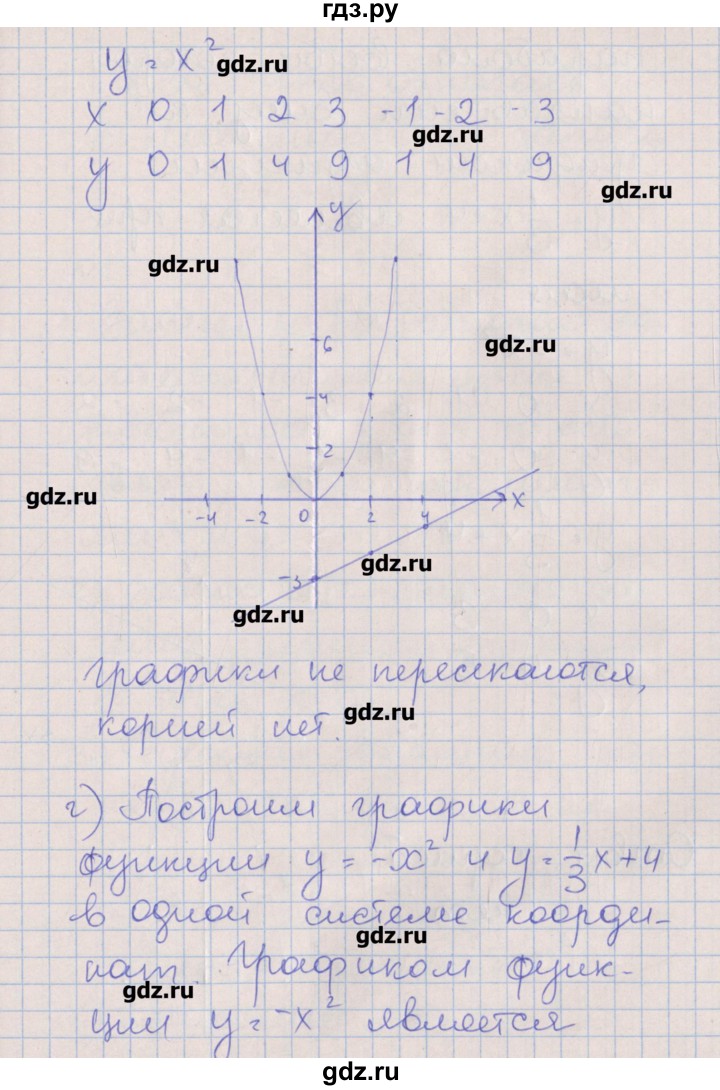 гдз.ру
y = x²
gdz.ru
x 0 1 2 3 -1 -2 -3
gdz.ru
y 0 1 4 9 1 4 9
gdz.ru
y
gdz.ru
6
gdz.ru
4
2
gdz.ru
-4 -2 0 2 4 x
gdz.ru
-3
gdz.ru
графики не пересекаются,
gdz.ru
корней нет.
г) Построим графики
функции y = -x² и y = 1/3 x + 4
в одной системе коорди-
gdz.ru
нат. Графиком функ-
gdz.ru
ции y = -x² является
гдз.ру